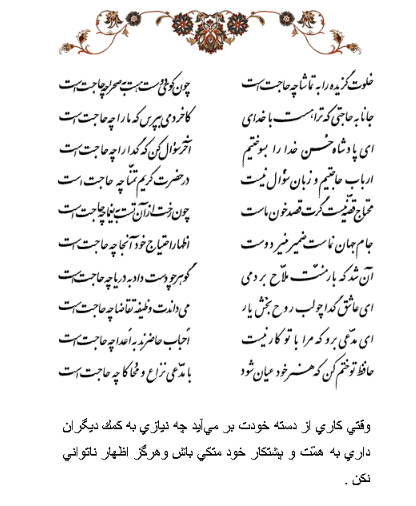 خلوت گزیده را به تماشا چه حاجت است چون کوی دوست هست به صحرا چه حاجت است
جانا به حاجتی که ترا هست با خدای کاخر دمی بپرس که ما را چه حاجت است
ای پادشاه حسن خدا را بسوختیم آخر سؤال کن که گدا را چه حاجت است
ارباب حاجتیم و زبان سؤال نیست در حضرت کریم تمنا چه حاجت است
محتاج قصه نیست گرت قصد خون ماست چون رخت از آن تست به یغما چه حاجت است
جام جهان نماست ضمیر منیر دوست اظهار احتیاج خود آنجا چه حاجت است
آن شد که بار منت ملاح بردمی گوهر چو دست داد به دریا چه حاجت است
ای عاشق گدا چو لب روح بخش یار می‌داندت وظیفه تقاضا چه حاجت است
ای مدعی برو که مرا با تو کار نیست احباب حاضرند به اعدا چه حاجت است
حافظ تو ختم کن که هنر خود عیان شود با مدعی نزاع و محاکا چه حاجت است
وقتي کاري از دسته خودت بر مي‌آيد چه نيازي به کمك ديگران
داري به همّت و پشتکار خود متکي باش وهرگز اظهار ناتواني
نکن .